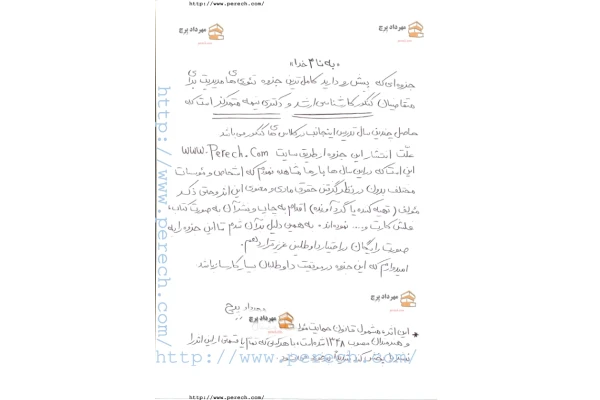 http://www.perech.com/
مهرداد پرچ
مهرداد پرچ
«به نام خدا»
جزوه‌ای که پیش رو دارید کاملترین جزوه تئوری‌های مدیریت برای
متقاضیان کنکور کارشناسی ارشد و دکتری نیمه متمرکز است که
حاصل چندین سال تدریس اینجانب در کلاس‌های کنکور می‌باشد
علت انتشار این جزوه از طریق سایت www.Perech.Com
این است که در این سال‌ها بارها مشاهده نمودم که اشخاص و موسسات
مختلف بدون در نظر گرفتن حقوق مادی و معنوی این اثر و حتی ذکر
مؤلف (تهیه کننده یا گردآورنده) اقدام به چاپ و نشر آن به صورت کتاب،
فلش کارت و... نموده‌اند. به همین دلیل بر آن شدم تا این جزوه را به
صورت رایگان در اختیار داوطلبین عزیز قرار دهم.
امیدوارم که این جزوه در موفقیت داوطلبان بسیار کارساز باشد
مهرداد پرچ
مهرداد پرچ
مهرداد پرچ
* این اثر، مشمول قانون حمایت
و هنرمندان مصوب ۱۳۴۸ است، هرکس تمام یا قسمتی از این اثر را
http://www.perech.com/
http://www.perech.com/
http://www.perech.com/